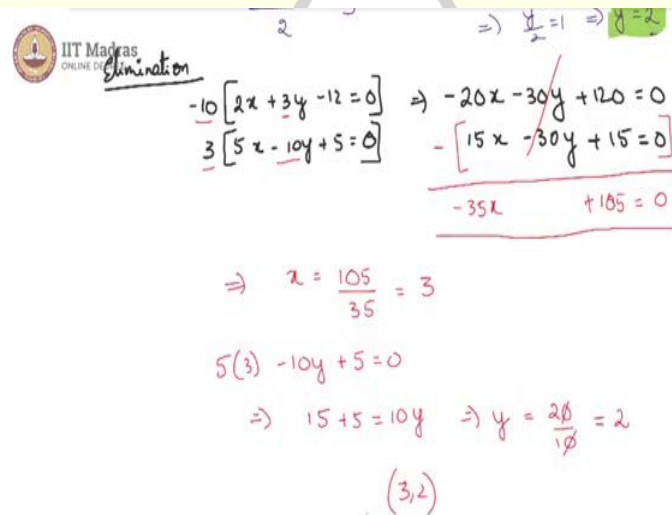 2
=) y/2 = 1 =) y = 2
IIT Madras
ONLINE DEGREE
Elimination
-10 [2x + 3y - 12 = 0] =) -20x - 30y + 120 = 0
3 [5x - 10y + 5 = 0] - [15x - 30y + 15 = 0]
-35x + 105 = 0
=) x = 105/35 = 3
5(3) - 10y + 5 = 0
=) 15 + 5 = 10y =) y = 20/10 = 2
(3,2)